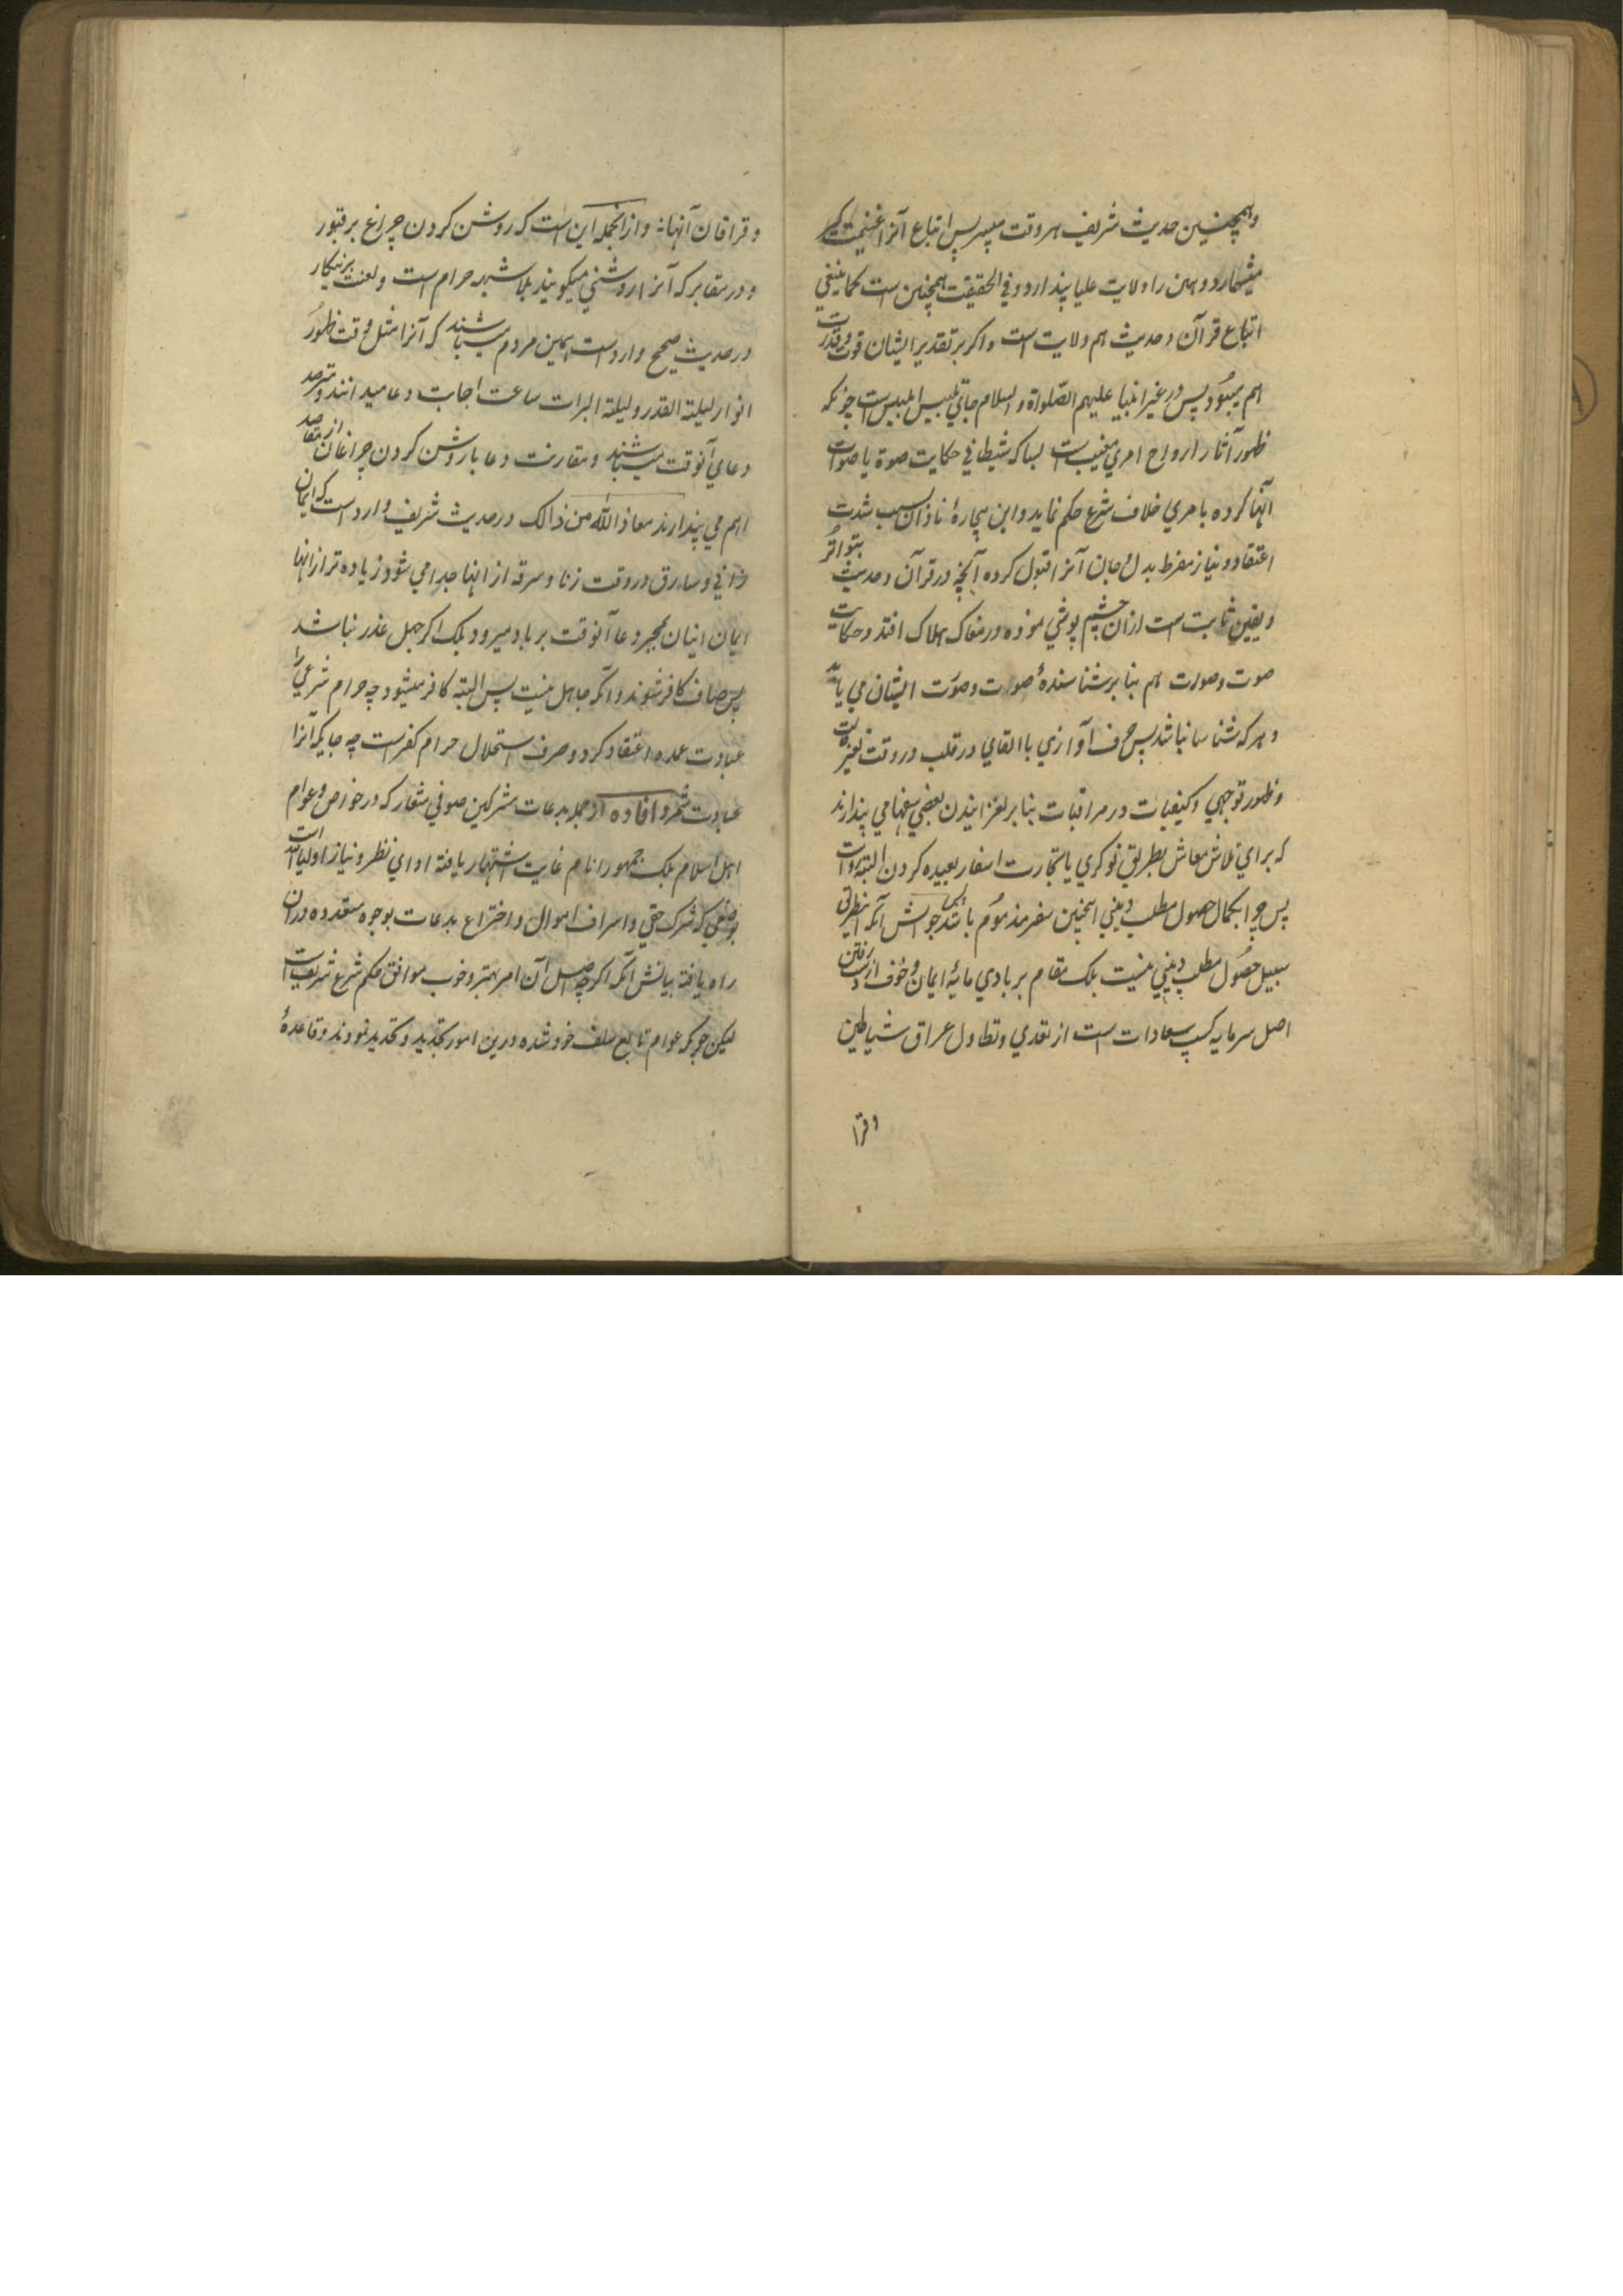 وهمچنین حدیث شریف هر وقت میسر پس اتباع آنرا غنیمت کبر
میشمارد و همین را ولایت علیا پندارد و في الحقیقت همچنین است کما ینبغي
اتباع قرآن و حدیث هم ولایت است و اکر بر تقدیر ایشان قوت و قدرت
هم بود پس در غیر انبیا علیهم الصلواة و السلام جاي تلبیس ابلیس است چونکه
ظهور آثار ارواح امري مغیب است بسا که شیطاني حکایت صوة یا صوات
آنها کرده بامري خلاف شرع حکم نماید و این بیچارهٔ نادان بسبب شدت
اعتقاد و نیاز مفرط بدل و جان آنرا قبول کرده آنچه در قرآن و حدیث بتواتر
و یقین ثابت است ازان چشم پوشي نموده در مغاک هلاک افتد و حکایت
صوت و صورت هم بنا بر شناسندهٔ صورت و صوت ایشان مي یابد
و هر که شناسا نباشد پس حرف آوازي یا القاي در قلب در وقت
و ظهور توجهي و کیفیات در مراقبات بنا بر لغزانیدن بعضي سفها مي پندارند
که براي تلاش معاش بطریق نوکري یا تجارت اسفار بعیده کردن البته روا است
پس چرا بکمال حصول مطلب دیني اینچنین سفر مذموم باشد جوابش آنکه
سبیل حصول مطلب دیني نیست بلکه مقام بربادي مایهٔ ایمان و خوف از دست رفتن
اصل سرمایه کسب سعادات است از تعدي و تطاول عراق شیاطین
و قرا
و قراقان آنهانه و از انجمله این است که روشن کردن چراغ بر قبور
و در مقابر که آنرا روشني میکویند بلا شبهه حرام است و لعنت برنیکار
در حدیث صحیح وارد است همین مردم میباشند که آنرا مثل وقت ظهور
انوار لیلة القدر و لیلة البرات ساعت اجابت دعا میدانند و مترصد
دعاي آنوقت میباشند و مقارنت دعا با روشن کردن چراغان از مقاصد
اهم مي پندارند معاذ الله من ذالک در حدیث شریف وارد است که ایمان
زاني و سارق در وقت زنا و سرقه از انها جدا مي شود زیاده تر از انها
ایمان اینان بمجرد دعا آنوقت برباد میرود بلکه اکر جهل عذر نباشد
پس صاف کافر شوند و آنکه جاهل نیست پس البته کافر میشود چه حرام شرعي را
عبادت عمده اعتقاد کرد و صرف استحلال حرام کفر است چه جایکه آنرا
عبادت شمرد افاده از جمله بدعات مشرکین صوفي شعار که در خواص و عوام
اهل اسلام بلکه جمهور انام غایت اشتهار یافته اداي نظر و نیاز اولیا الله است
بوضعي که شرک خفي و اسراف اموال و اختراع بدعات بوجوه متعدده دران
راه یافته بیانش آنکه اکرچه اصل آن امر بهتر و خوب موافق حکم شرع شریف است
لیکن چونکه عوام تابع سلف خود شده درین امور تجدید و تحدید نمودند و قاعدهٔ